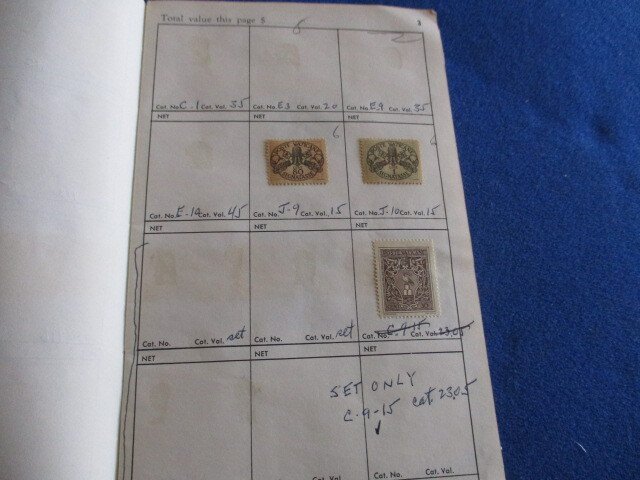 Total value this page $
3
6
Cat. No. C-1 Cat. Val. 35 Cat. No. E3 Cat. Val. 20 Cat. No. E-9 Cat. Val. 35
NET NET NET
6 6
80
Cat. No. E-10 Cat. Val. 45 Cat. No. J-9 Cat. Val. 15 Cat. No. J-10 Cat. Val. 15
NET NET NET
Cat. No. Cat. Val. set Cat. No. Cat. Val. set Cat. No. C-9-15 Cat. Val. 23.05
NET NET NET
SET ONLY
C-9-15 cat. 23.05
Cat. Val. Cat. No. Cat. Val.